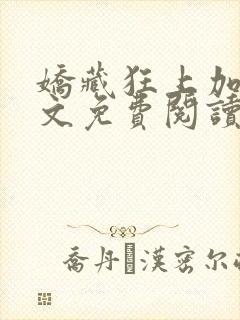 嬌藏狂上加
文免費閱讀
喬丹漢密尔